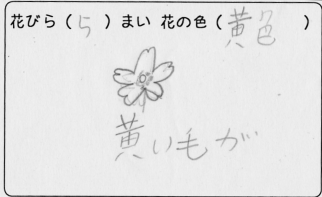 花びら(5)まい 花の色(黄色)
黄い毛が